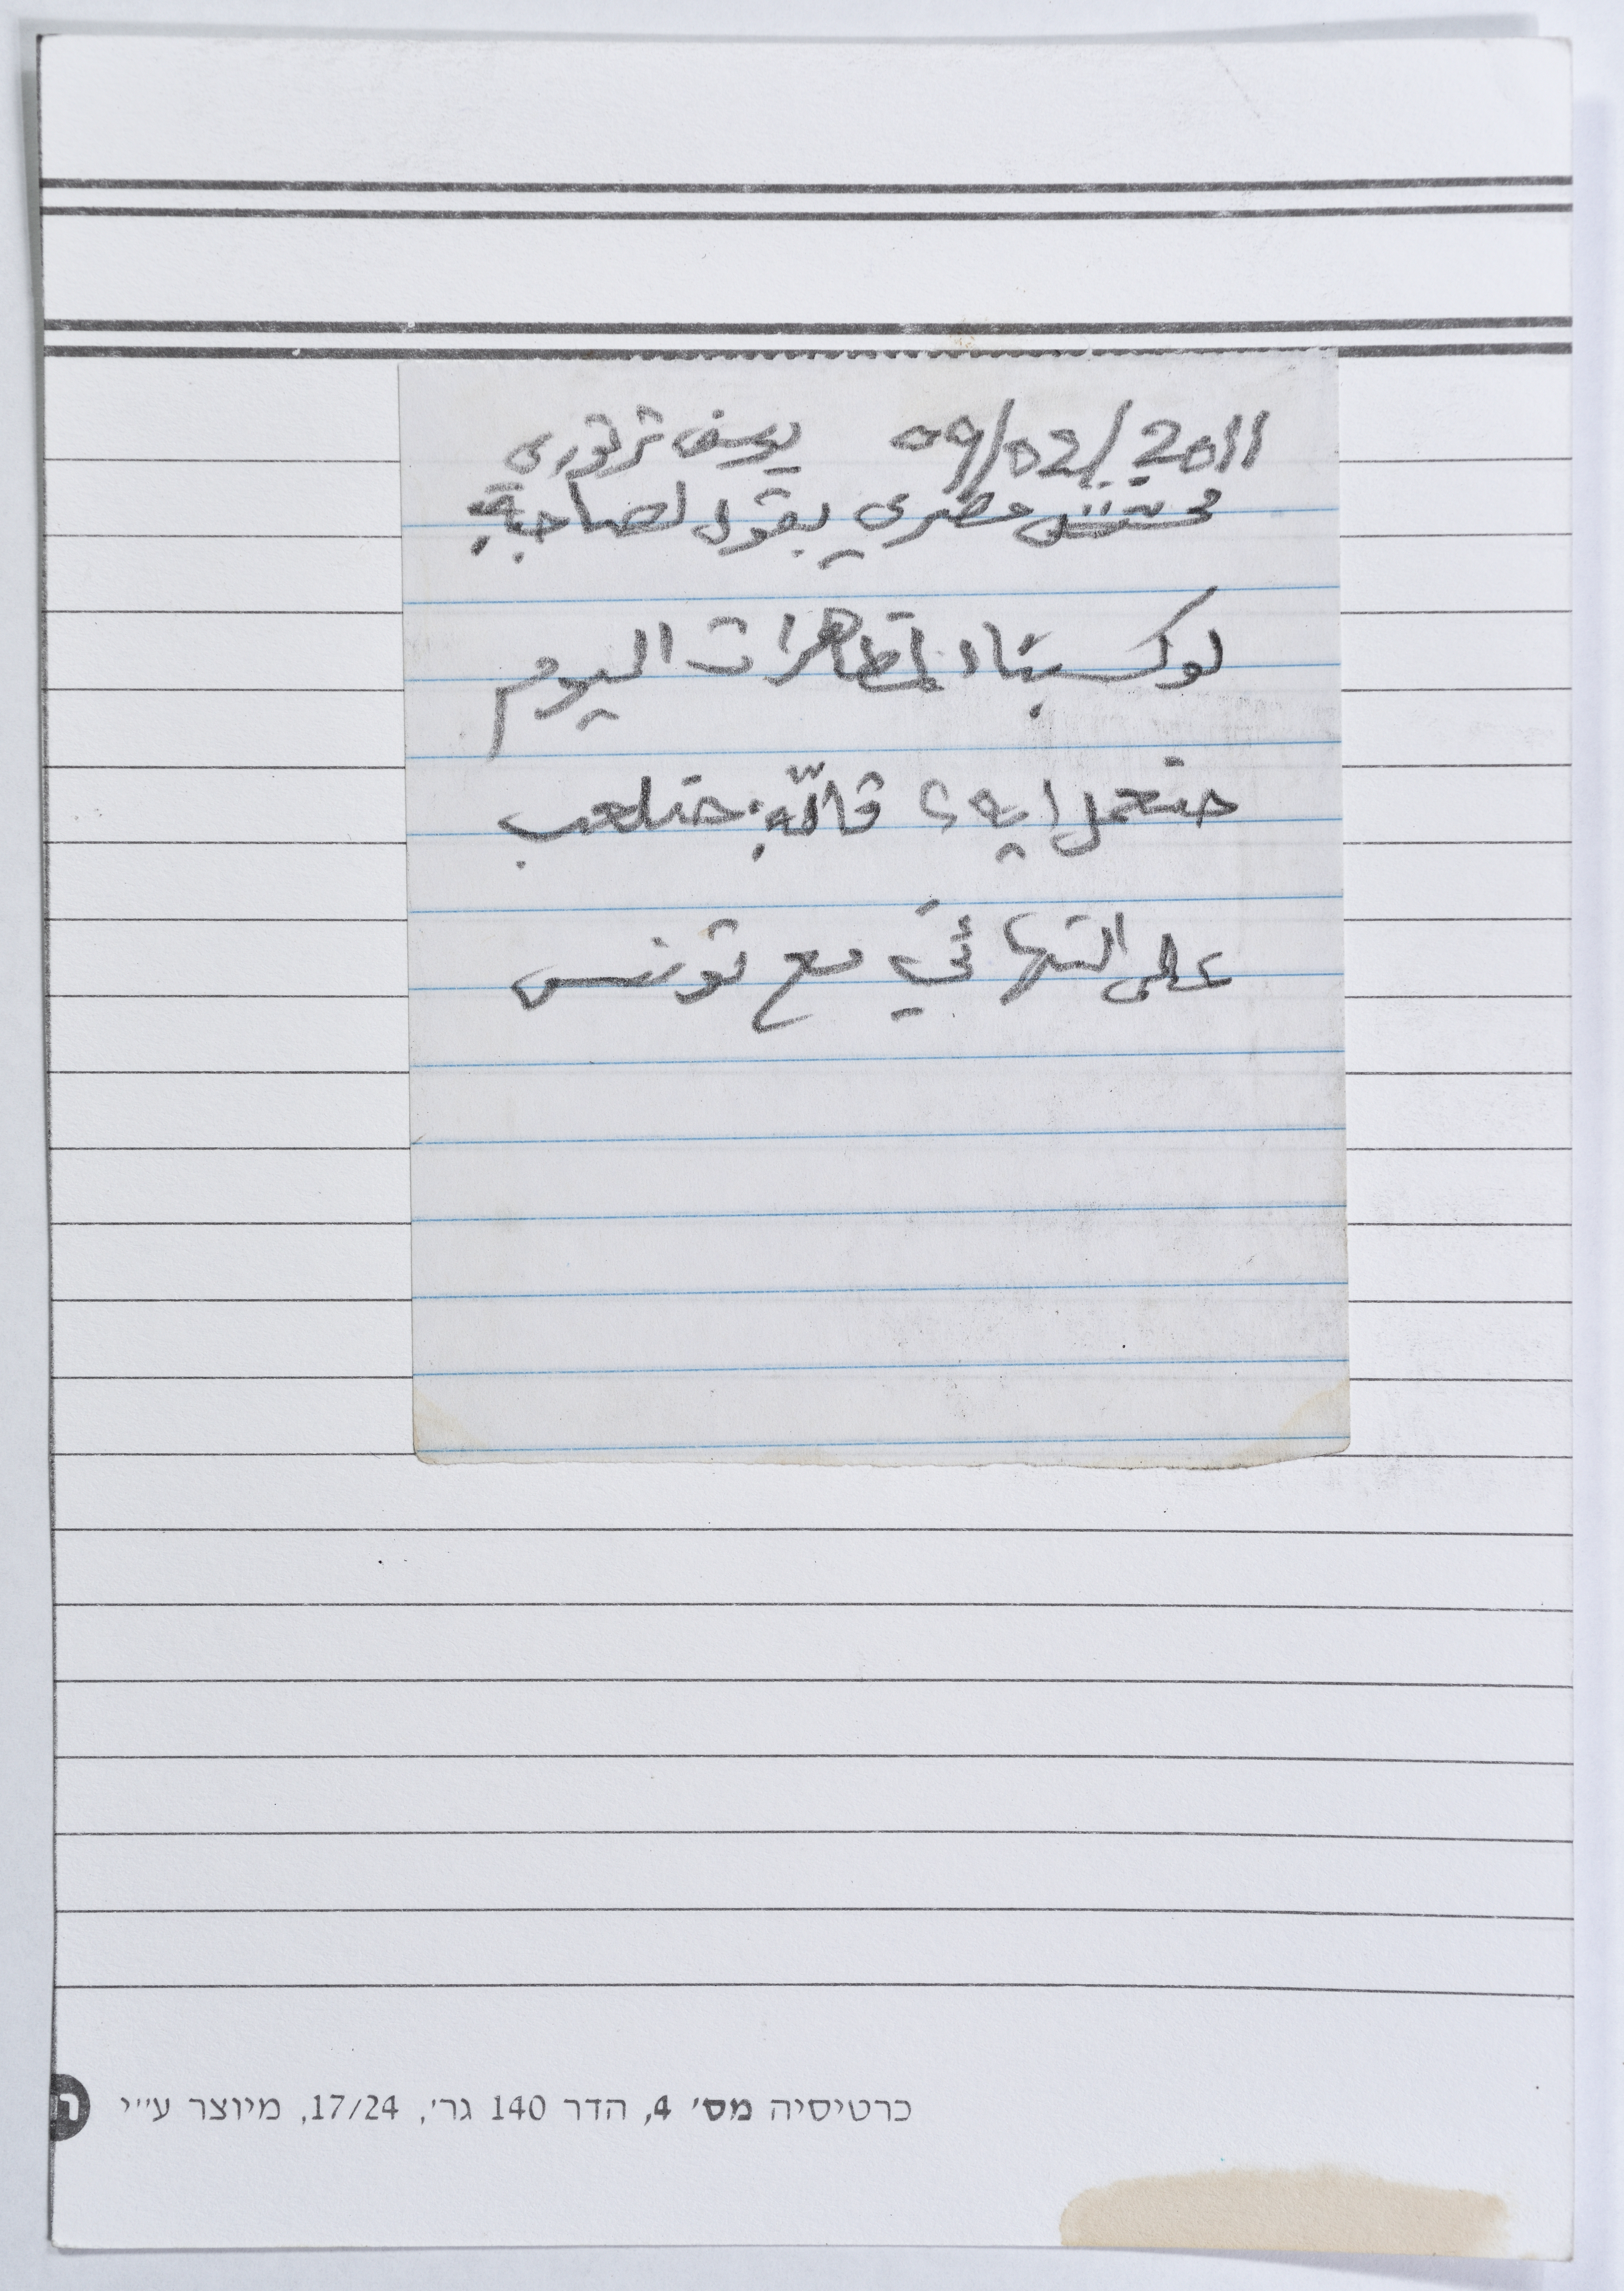 09/02/2011 يوسف ترتوري
محشش مصري بقول لصاحبه:
لو كسبنا المظاهرات اليوم
حنعمل ايه؟ قالّه: حنلعب
على النهائي مع تونس
כרטיסיה מס׳ 4, הדר 140 גר׳, 17/24, מיוצר ע״י